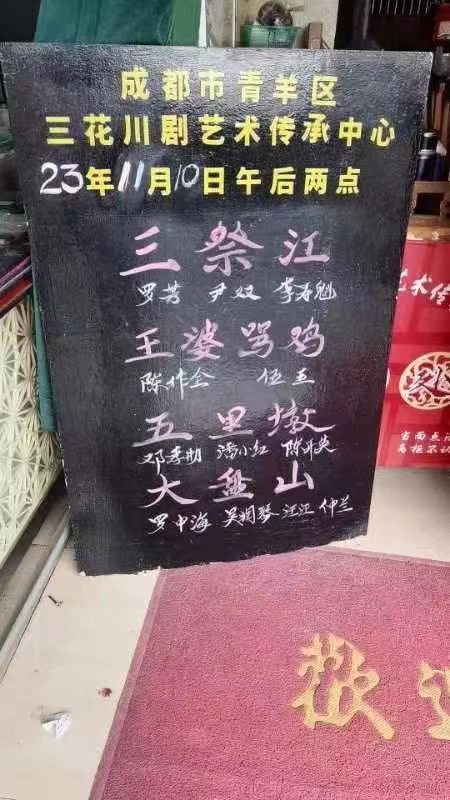 成都市青羊区
三花川剧艺术传承中心
23年11月10日午后两点
三祭江
罗芳 尹双 李春魁
王婆骂鸡
陈作全 伍三
五里墩
邓孝勋 潘小红 陈开英
大盘山
罗中海 吴桐琴 汪江 仲兰
艺术传
当面点
欢